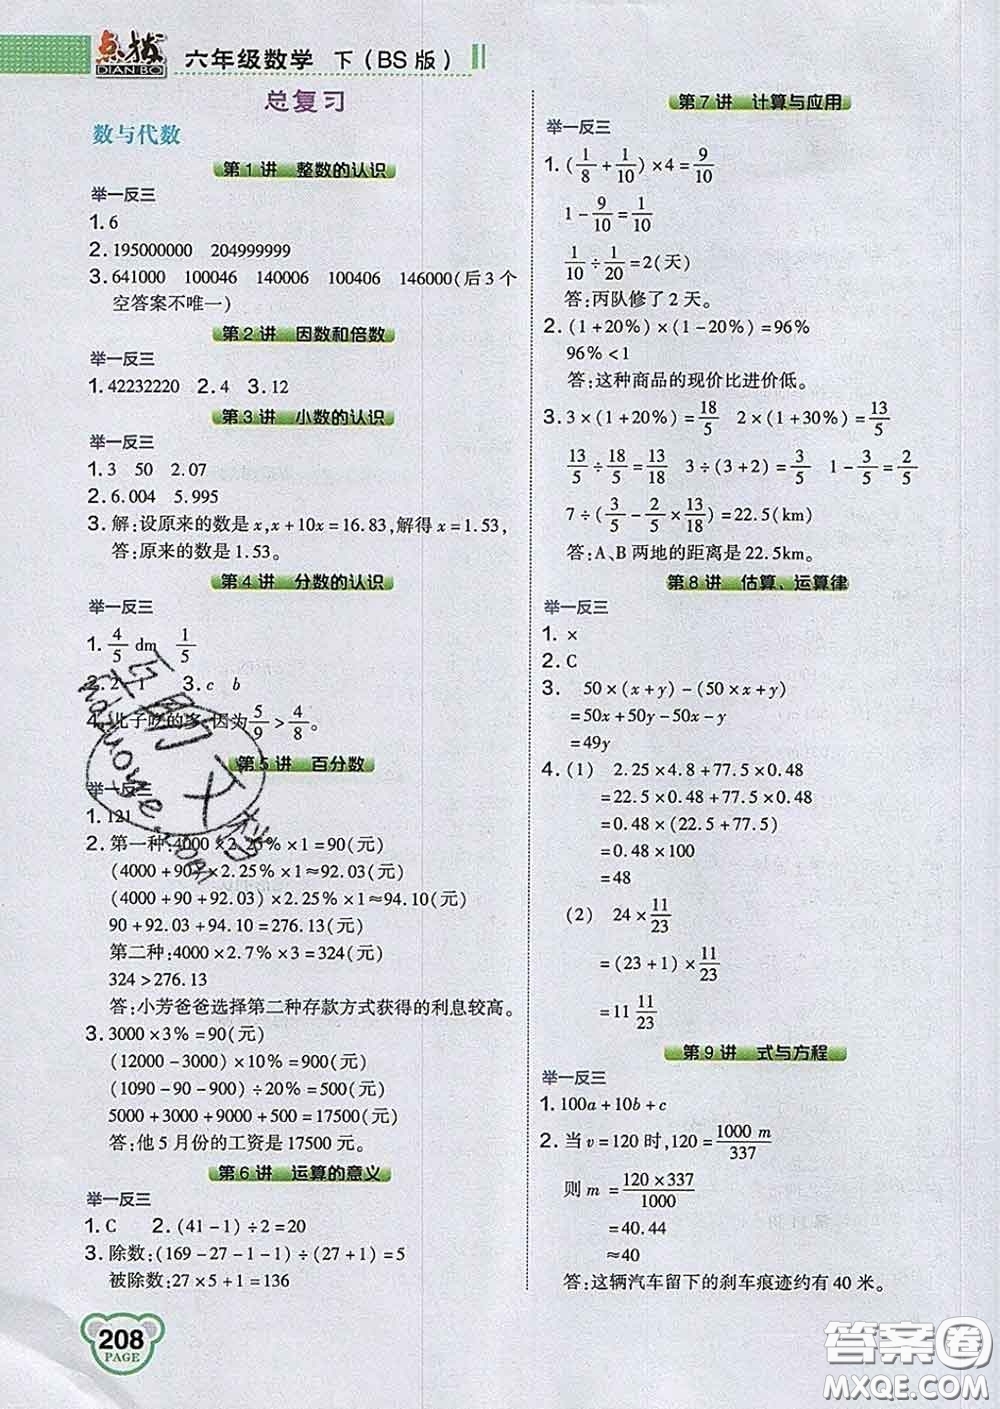 点拨 六年级数学 下(BS版)
DIAN BO
总复习
数与代数
第1讲 整数的认识
举一反三
1. 6
2. 195000000 204999999
3. 641000 100046 140006 100406 146000(后3个
空答案不唯一)
第2讲 因数和倍数
举一反三
1. 42232220 2. 4 3. 12
第3讲 小数的认识
举一反三
1. 3 50 2.07
2. 6.004 5.995
3. 解:设原来的数是x,x+10x=16.83,解得x=1.53,
答:原来的数是1.53。
第4讲 分数的认识
举一反三
1. 4/5 dm 1/5
2. 2 1 3. c b
4. 儿子吃的多,因为5/9>4/8。
第5讲 百分数
举一反三
1. 121
2. 第一种:4000×2.25%×1=90(元)
(4000+90)×2.25%×1≈92.03(元)
(4000+90+92.03)×2.25%×1≈94.10(元)
90+92.03+94.10=276.13(元)
第二种:4000×2.7%×3=324(元)
324>276.13
答:小芳爸爸选择第二种存款方式获得的利息较高。
3. 3000×3%=90(元)
(12000-3000)×10%=900(元)
(1090-90-900)÷20%=500(元)
5000+3000+9000+500=17500(元)
答:他5月份的工资是17500元。
第6讲 运算的意义
举一反三
1. C 2. (41-1)÷2=20
3. 除数:(169-27-1-1)÷(27+1)=5
被除数:27×5+1=136
208
PAGE
第7讲 计算与应用
举一反三
1. (1/8+1/10)×4=9/10
1-9/10=1/10
1/10÷1/20=2(天)
答:丙队修了2天。
2. (1+20%)×(1-20%)=96%
96%<1
答:这种商品的现价比进价低。
3. 3×(1+20%)=18/5 2×(1+30%)=13/5
13/5÷18/5=13/18 3÷(3+2)=3/5 1-3/5=2/5
7÷(3/5-2/5×13/18)=22.5(km)
答:A、B两地的距离是22.5km。
第8讲 估算、运算律
举一反三
1. ×
2. C
3. 50×(x+y)-(50×x+y)
=50x+50y-50x-y
=49y
4. (1) 2.25×4.8+77.5×0.48
=22.5×0.48+77.5×0.48
=0.48×(22.5+77.5)
=0.48×100
=48
(2) 24×11/23
=(23+1)×11/23
=11 11/23
第9讲 式与方程
举一反三
1. 100a+10b+c
2. 当v=120时,120=1000m/337
则m=120×337/1000
=40.44
≈40
答:这辆汽车留下的刹车痕迹约有40米。
答案圈
MXQE.COM